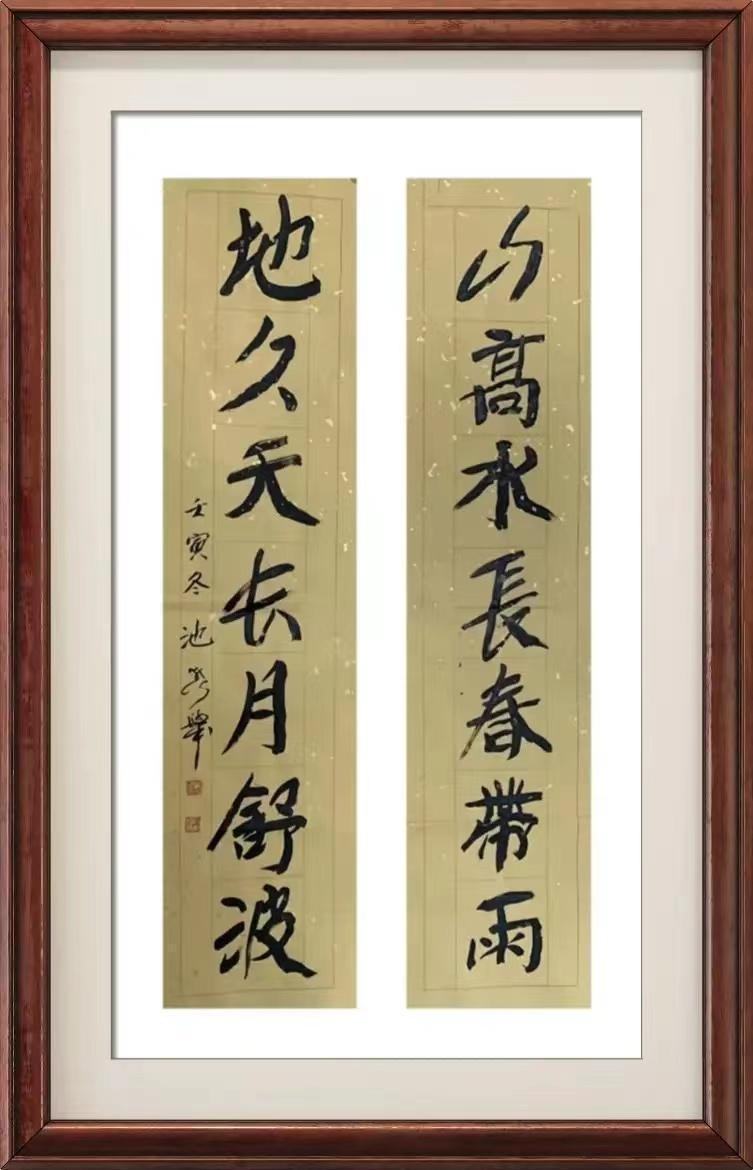 山髙水長春帶雨
地久天长月舒波
壬寅冬 池